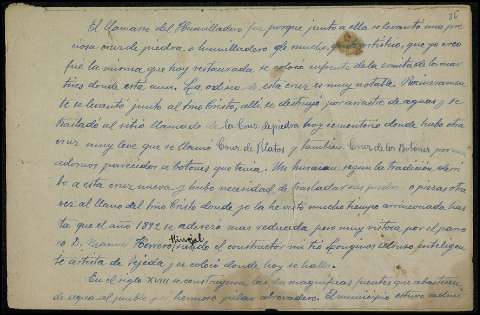 36
El llamarse del Humilladero fue porque junto a ella se levantó una pre-
ciosa cruz de piedra, o humilladero de mucho gusto artístico, que yo creo
fué la misma que hoy restaurada se colocó enfrente de la ermita de los mar-
tires donde está aun. La odisea de esta cruz es muy notable. Primeramen-
te se levantó junto al Smo Cristo, allí se destruyó por arrastre de aguas y se
trasladó al sitio llamado de la Cruz de piedra hoy cementerio donde hubo otra
cruz muy leve que se llamó Cruz de Pilatos y tambien Cruz de los Botones por unos
adornos parecidos a botones que tenia. Un huracan, segun la tradición, derri-
bó a esta cruz nueva y hubo necesidad de trasladar sus piedras o piezas otra
vez al llano del Smo Cristo donde yo la he visto mucho tiempo arrinconada has-
ta que el año 1892 se aderezó mas reducida pero muy vistosa, por el parro-
co D. Manuel Herrero, Hinojal siendo el constructor mi tio Longinos inteligen-
te artista de Tejeda y se colocó donde hoy se halla.
En el siglo XVIII se construyeron las dos magnificas fuentes que abastecian
de agua al pueblo y el hermoso pilar abrevadero. El municipio estuvo